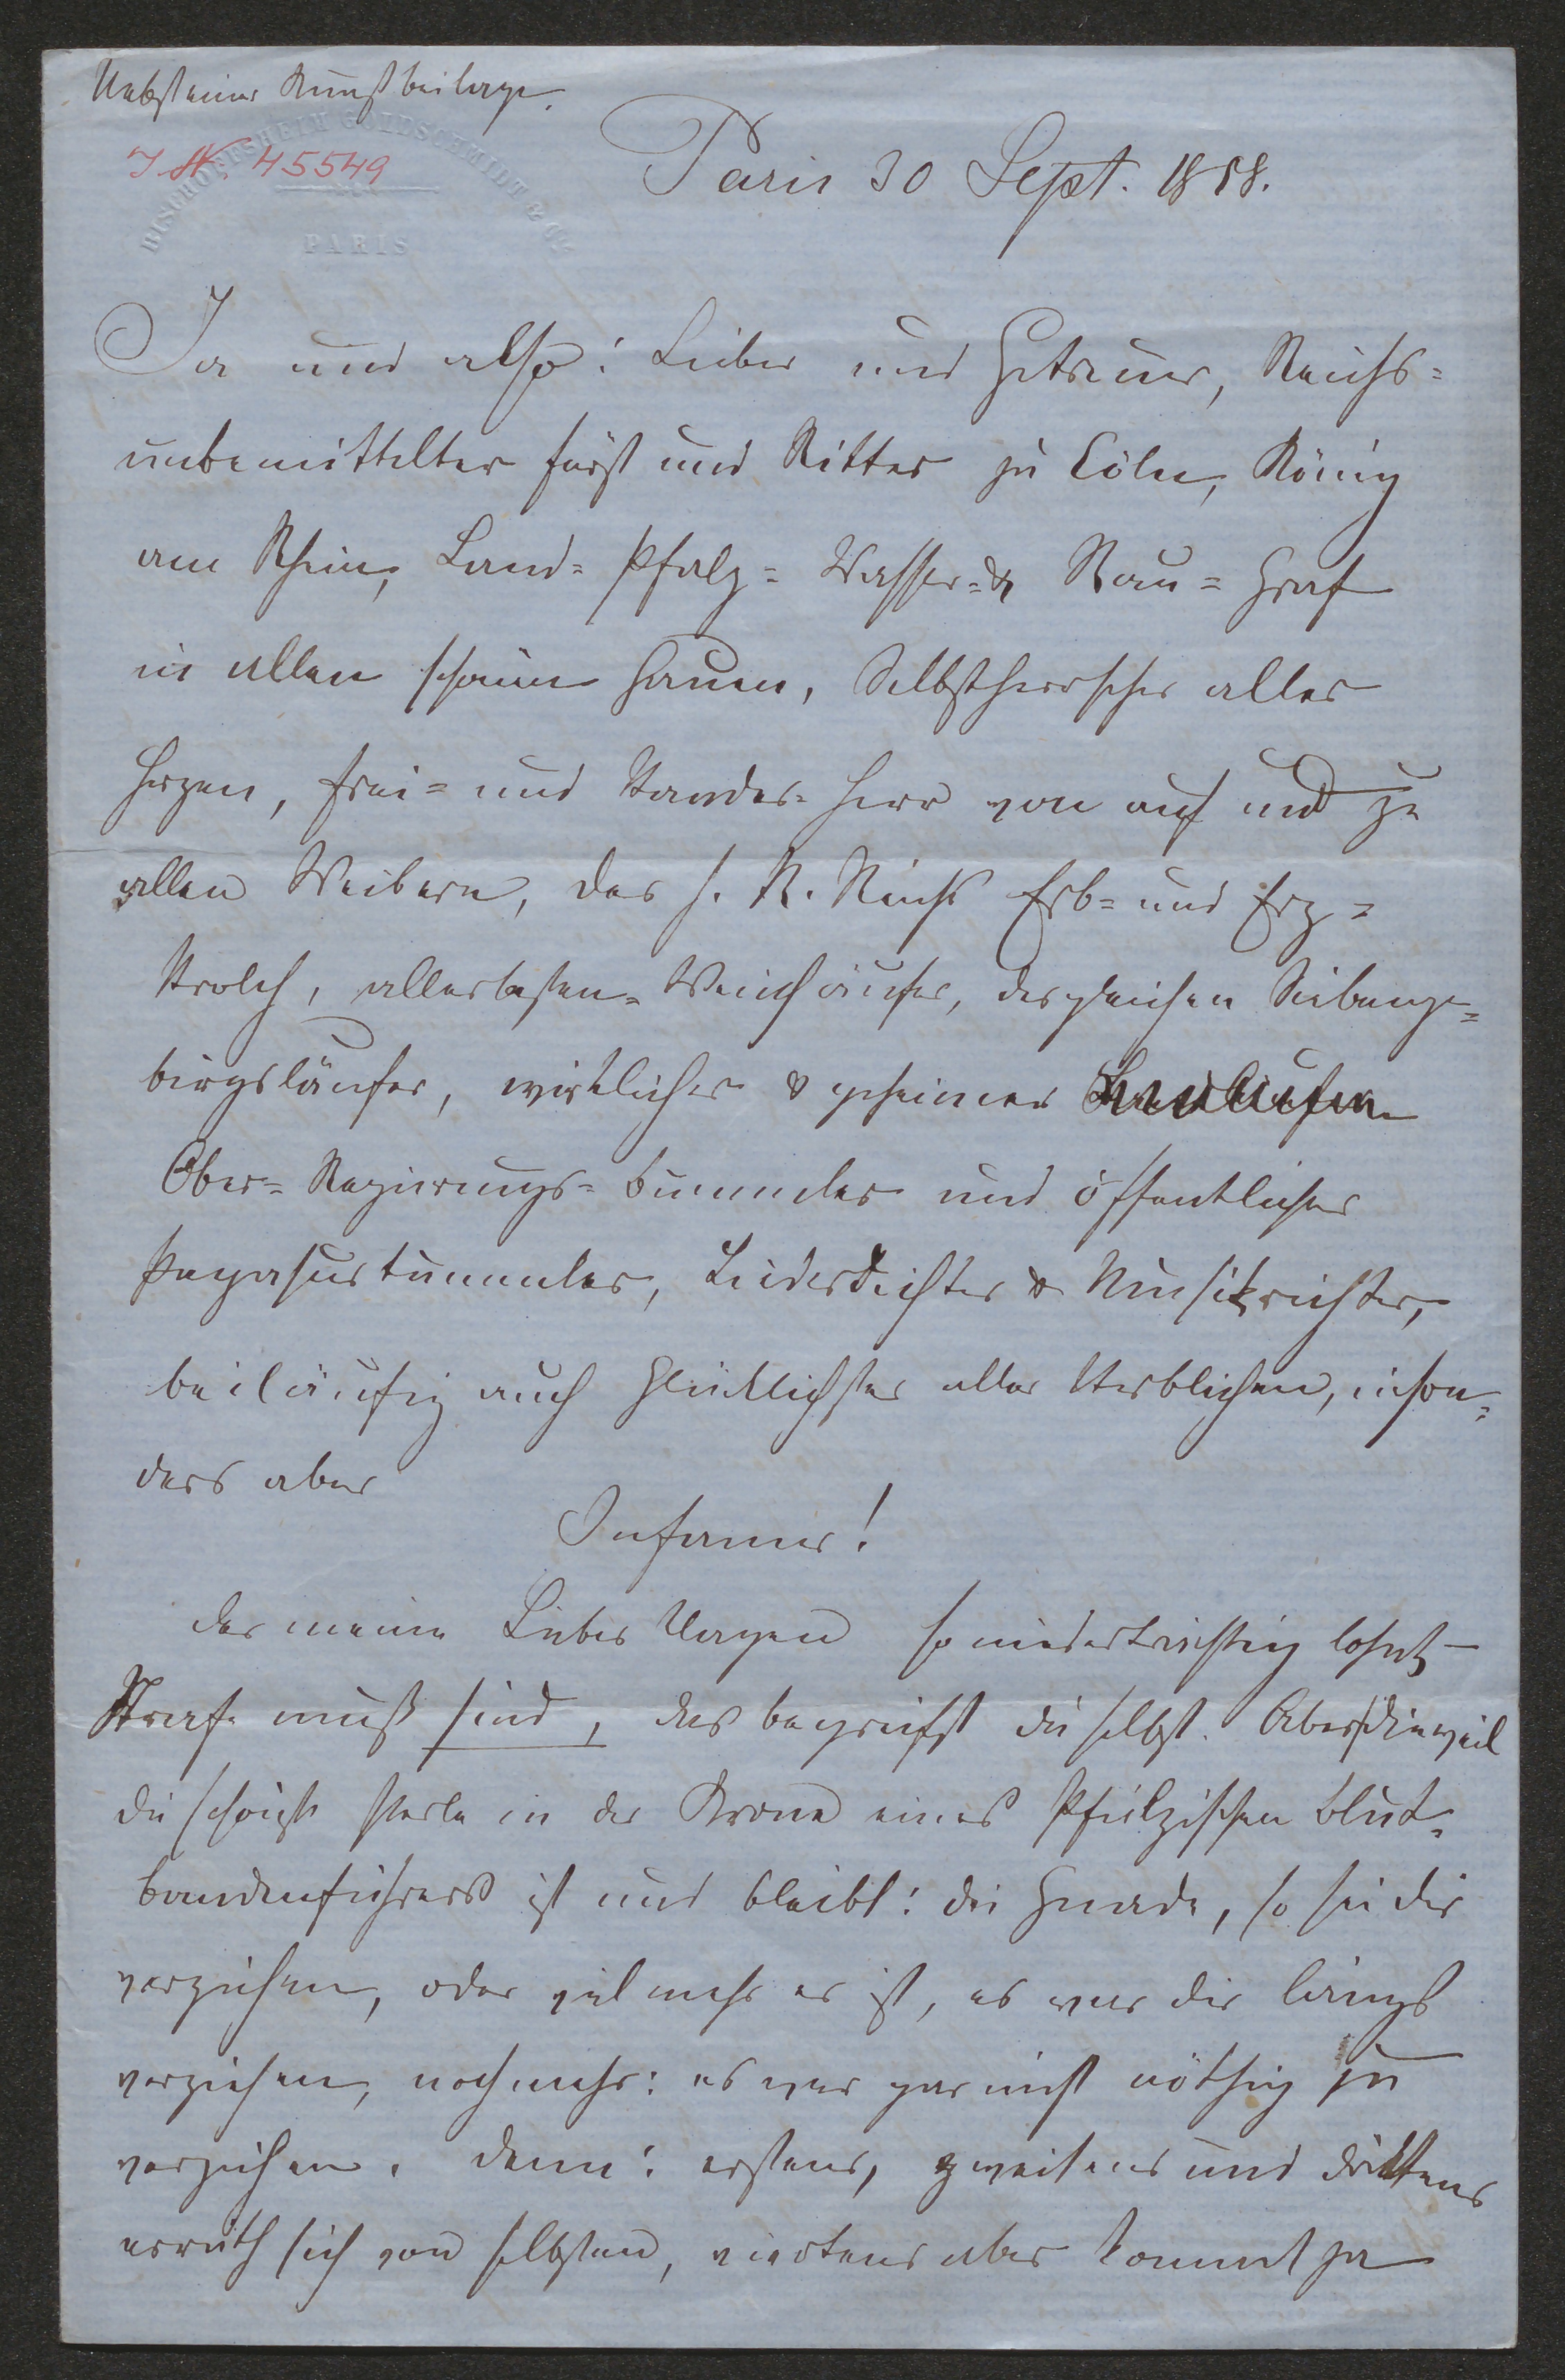 Nebst einer Kunstbeilage.
BISCHOFFSHEIM GOLDSCHMIDT & Cie
PARIS
I.N. 45549
Paris 30 Sept. 1858.
Ja und also: Lieber und Getreuer, Reichs=
unbemittelter Fürst und Ritter zu Cöln, König
am Rhein, Land= Pfalz= Wasser= & Rau= Graf
in allen schönen Gauen, Selbstherrscher aller
Herzen, Frei= und Standes= Herr von auf und zu
allen Weibern, des h. R. Reichs Erb= und Erz=
Strolch, allerbesten= Weinsäufer, desgleichen Siebenge=
birgsläufer, wirklicher & geheimer
Ober= Regierungs= Bummler und öffentlicher
Pegasustummler, Liederdichter & Musikrichter,
beiläufig auch Glücklichster aller Sterblichen, inson=
ders aber
Infamer!
der meine Liebes Klagen so niederträchtig lohnt –
Strafe muß sind, das begreifst du selbst. Aber dieweil
die schönste Perle in der Krone eines Pfälzischen Blut=
bandenführers ist und bleibt: die Gnade, so sei dir
verziehen, oder vielmehr es ist, es war dir längst
verziehen, noch mehr: es war gar nicht nöthig zu
verziehen. Denn: erstens, zweitens und drittens
verräth sich von selbsten, viertens aber kommt ja